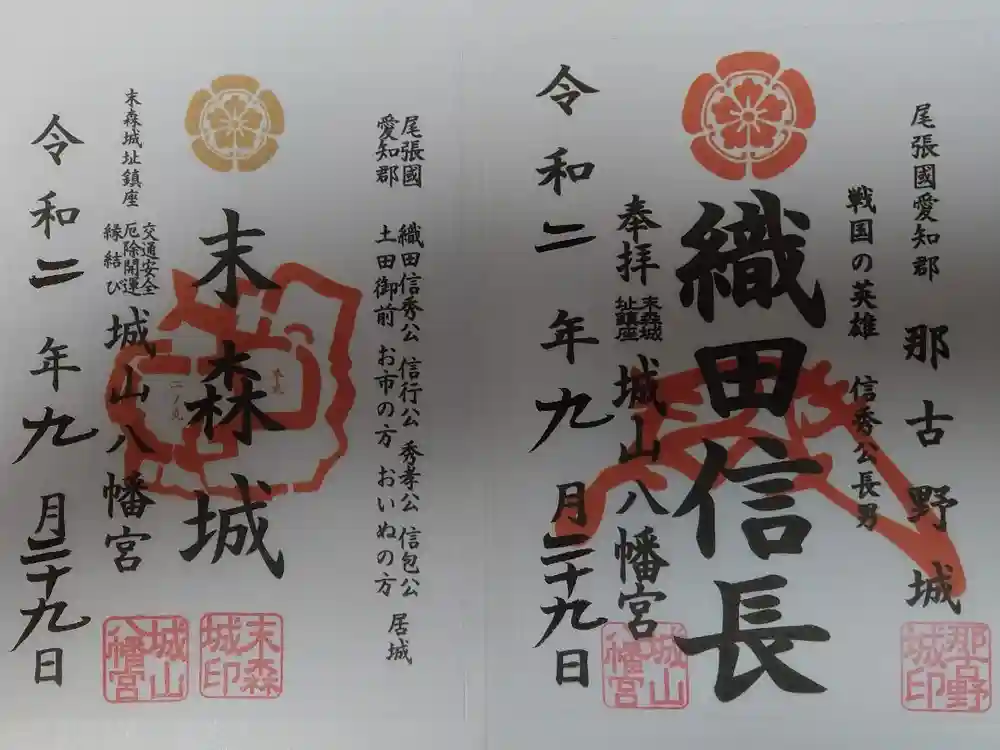 尾張國愛知郡 那古野城
那古野
城印
戦国の英雄 信秀公長男
織田信長
奉拝 末森城址鎮座 城山八幡宮
城山
八幡宮
令和二年九月二十九日
尾張國
愛知郡
織田信秀公 信行公 秀孝公 信包公
土田御前 お市の方 おいぬの方
居城
末森城
末森
城印
二ノ丸
末森城址鎮座
交通安全
厄除開運
縁結び
城山八幡宮
城山
八幡宮
令和二年九月二十九日